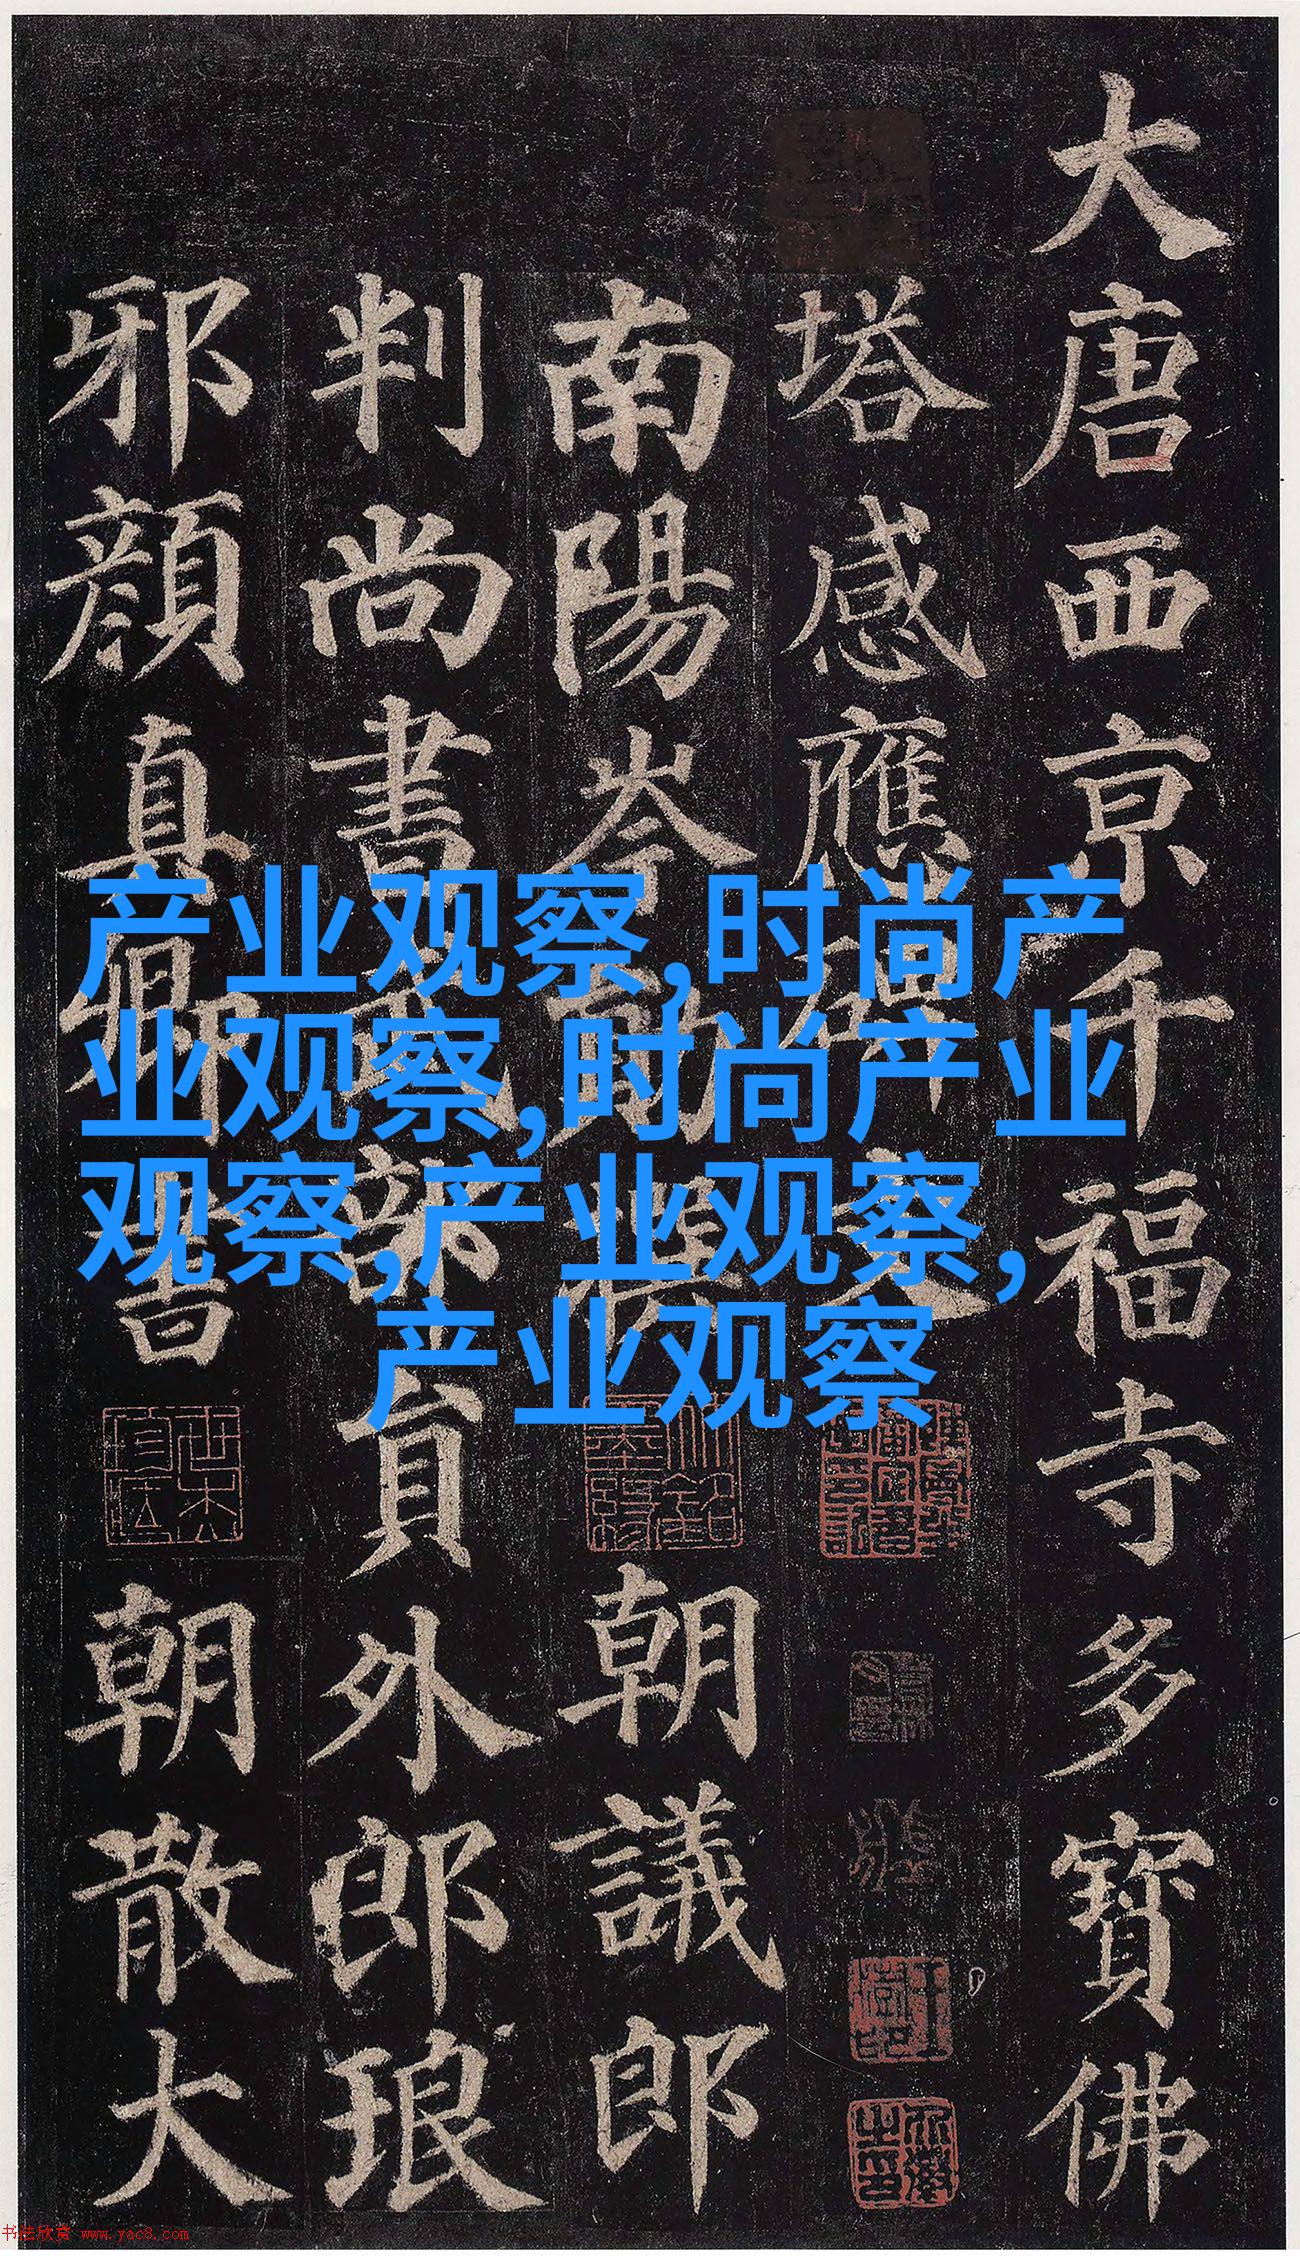 大唐西京千福寺多寶佛
塔感應碑文
南陽岑勛撰 朝議郎
判尚書武部員外郎琅
邪顏真卿書 朝散大
产业观察,时尚产
业观察,时尚产业
观察,产业观察,
产业观察
书法欣赏 www.yac8.com